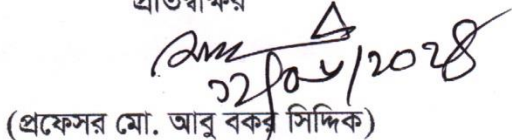 প্রতিস্বাক্ষর
১২/০৮/২০২৪
(প্রফেসর মো. আবু বকর সিদ্দিক)